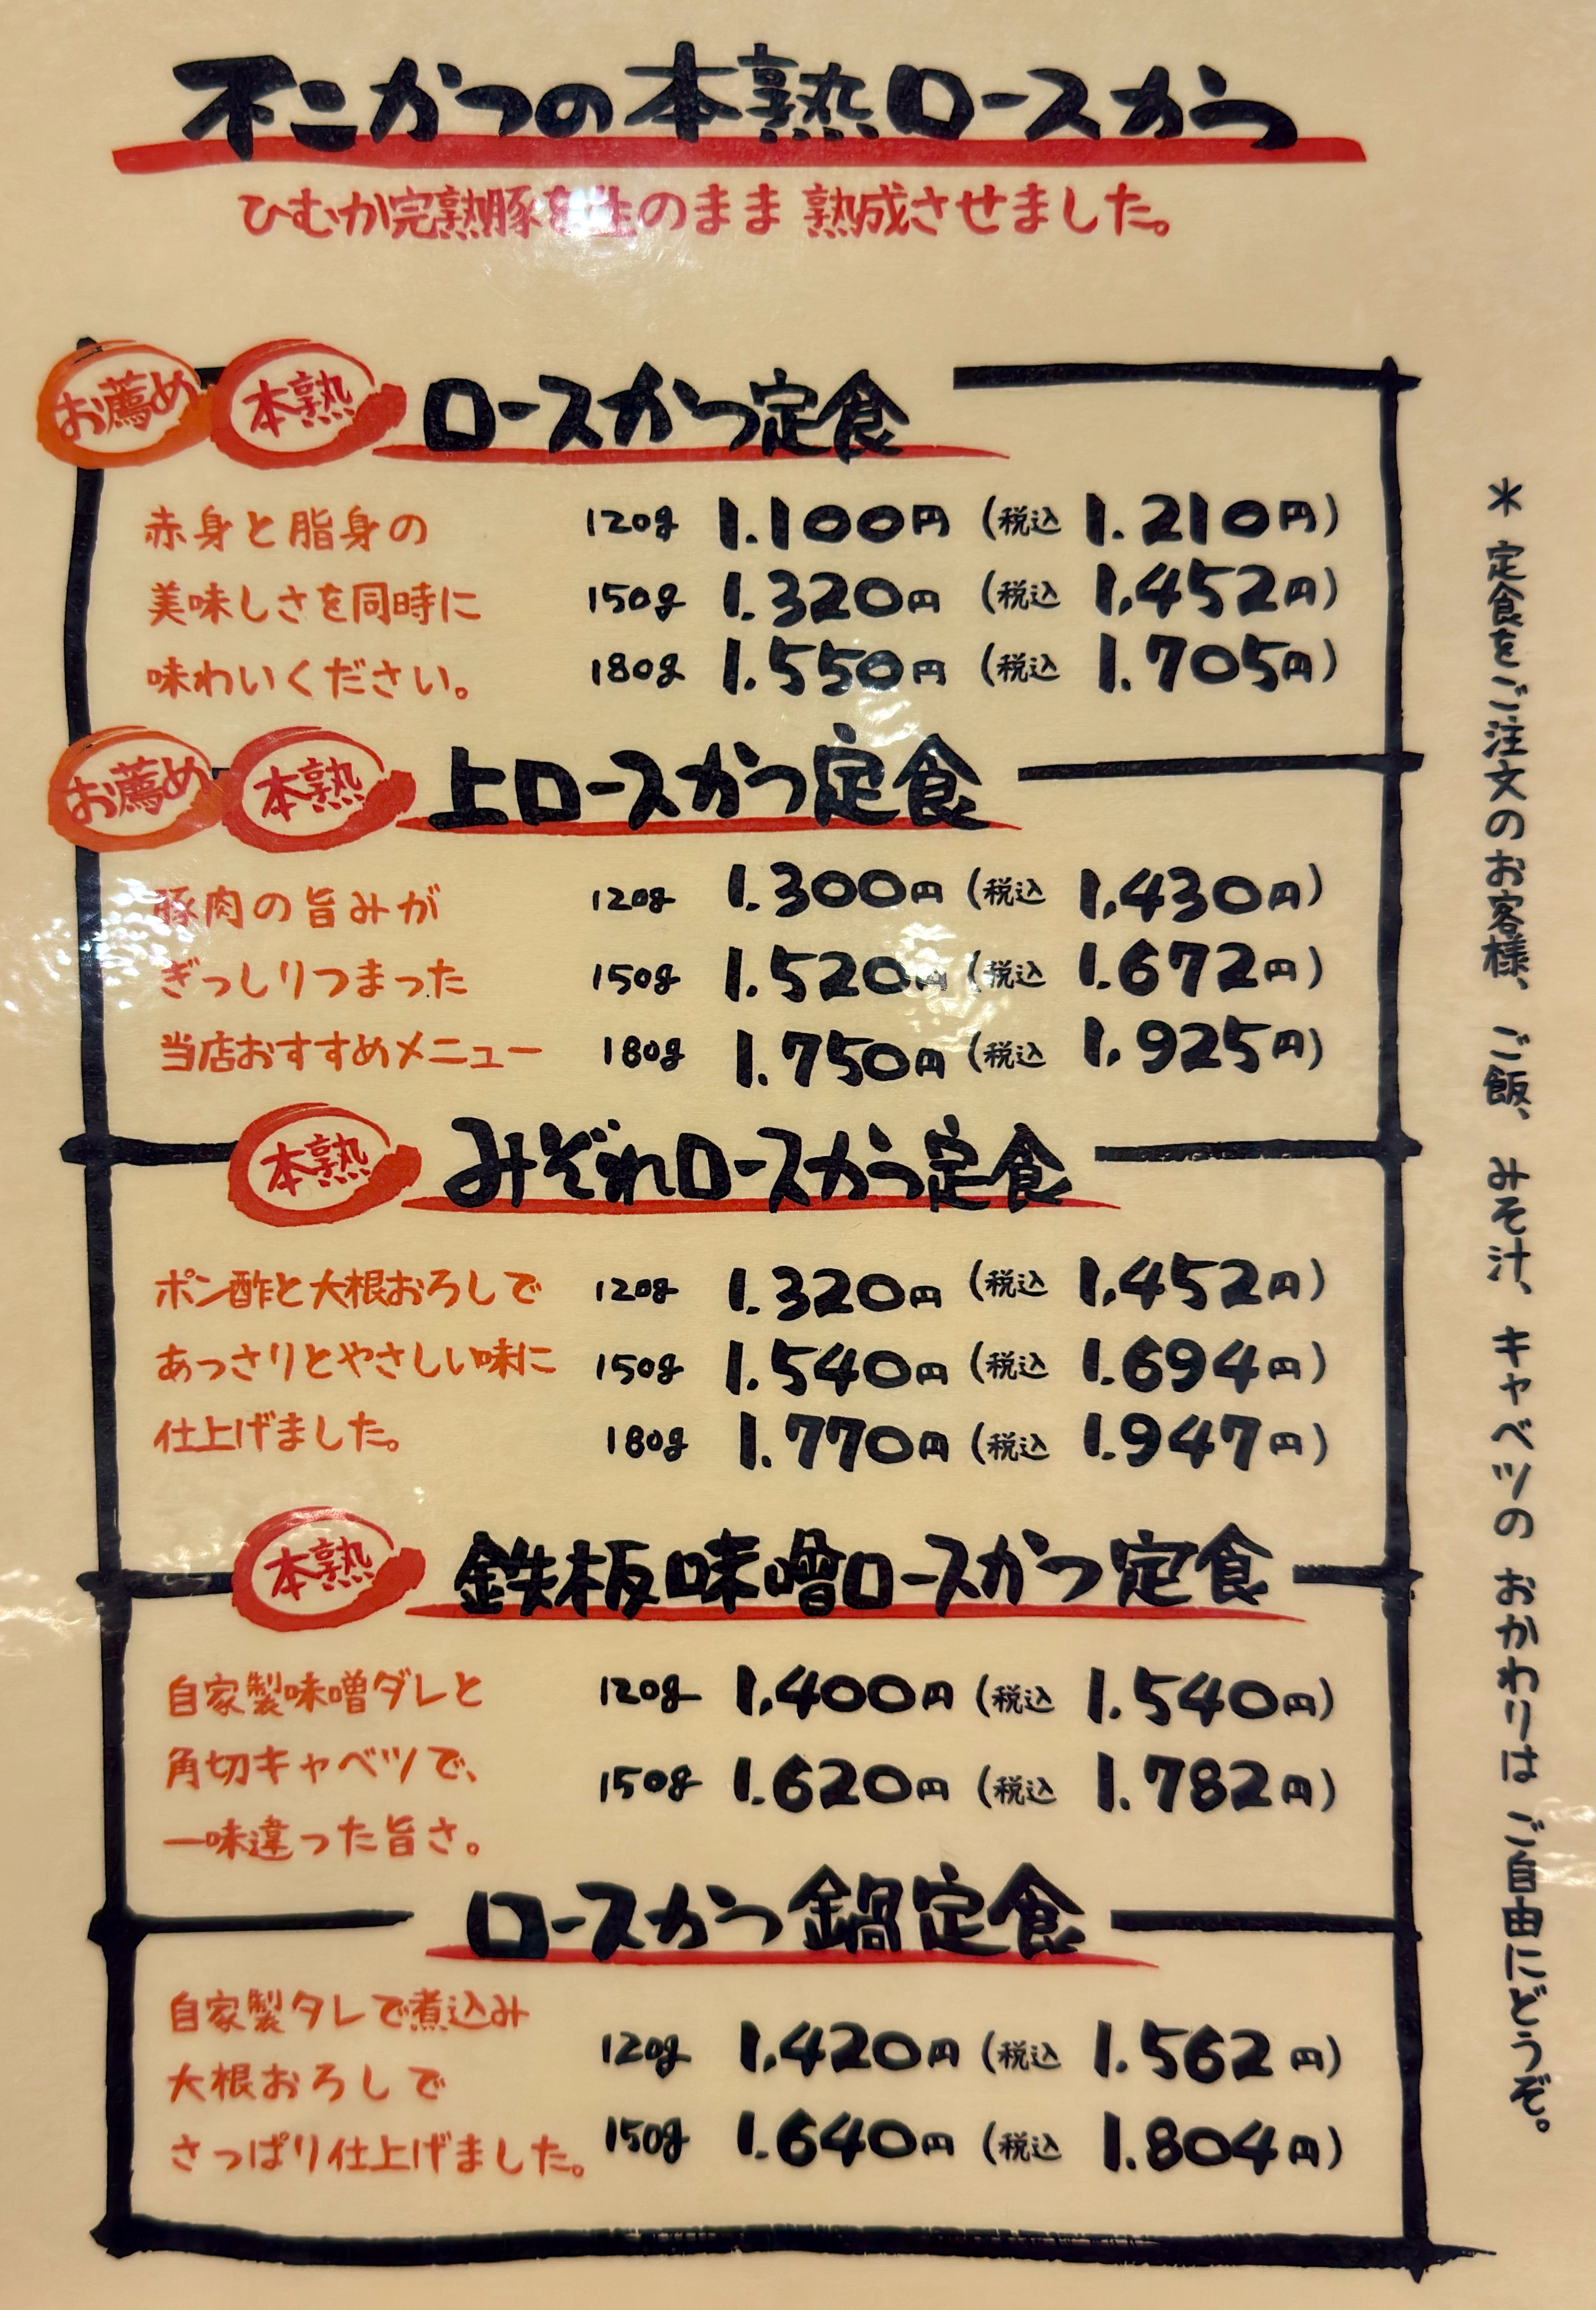 不二かつの本熟ロースかつ
ひむか完熟豚を生のまま 熟成させました。
お薦め 本熟 ロースかつ定食
赤身と脂身の
美味しさを同時に
味わいください。
120g 1.100円 (税込 1.210円)
150g 1.320円 (税込 1,452円)
180g 1.550円 (税込 1.705円)
お薦め 本熟 上ロースかつ定食
豚肉の旨みが
ぎっしりつまった
当店おすすめメニュー
120g 1.300円 (税込 1,430円)
150g 1.520円 (税込 1.672円)
180g 1.750円 (税込 1,925円)
本熟 みぞれロースかつ定食
ポン酢と大根おろしで
あっさりとやさしい味に
仕上げました。
120g 1.320円 (税込 1,452円)
150g 1.540円 (税込 1.694円)
180g 1.770円 (税込 1.947円)
本熟 鉄板味噌ロースかつ定食
自家製味噌ダレと
角切キャベツで、
一味違った旨さ。
120g 1,400円 (税込 1.540円)
150g 1.620円 (税込 1.782円)
ロースかつ鍋定食
自家製タレで煮込み
大根おろしで
さっぱり仕上げました。
120g 1,420円 (税込 1.562円)
150g 1.640円 (税込 1.804円)
＊定食をご注文のお客様、ご飯、みそ汁、キャベツのおかわりはご自由にどうぞ。